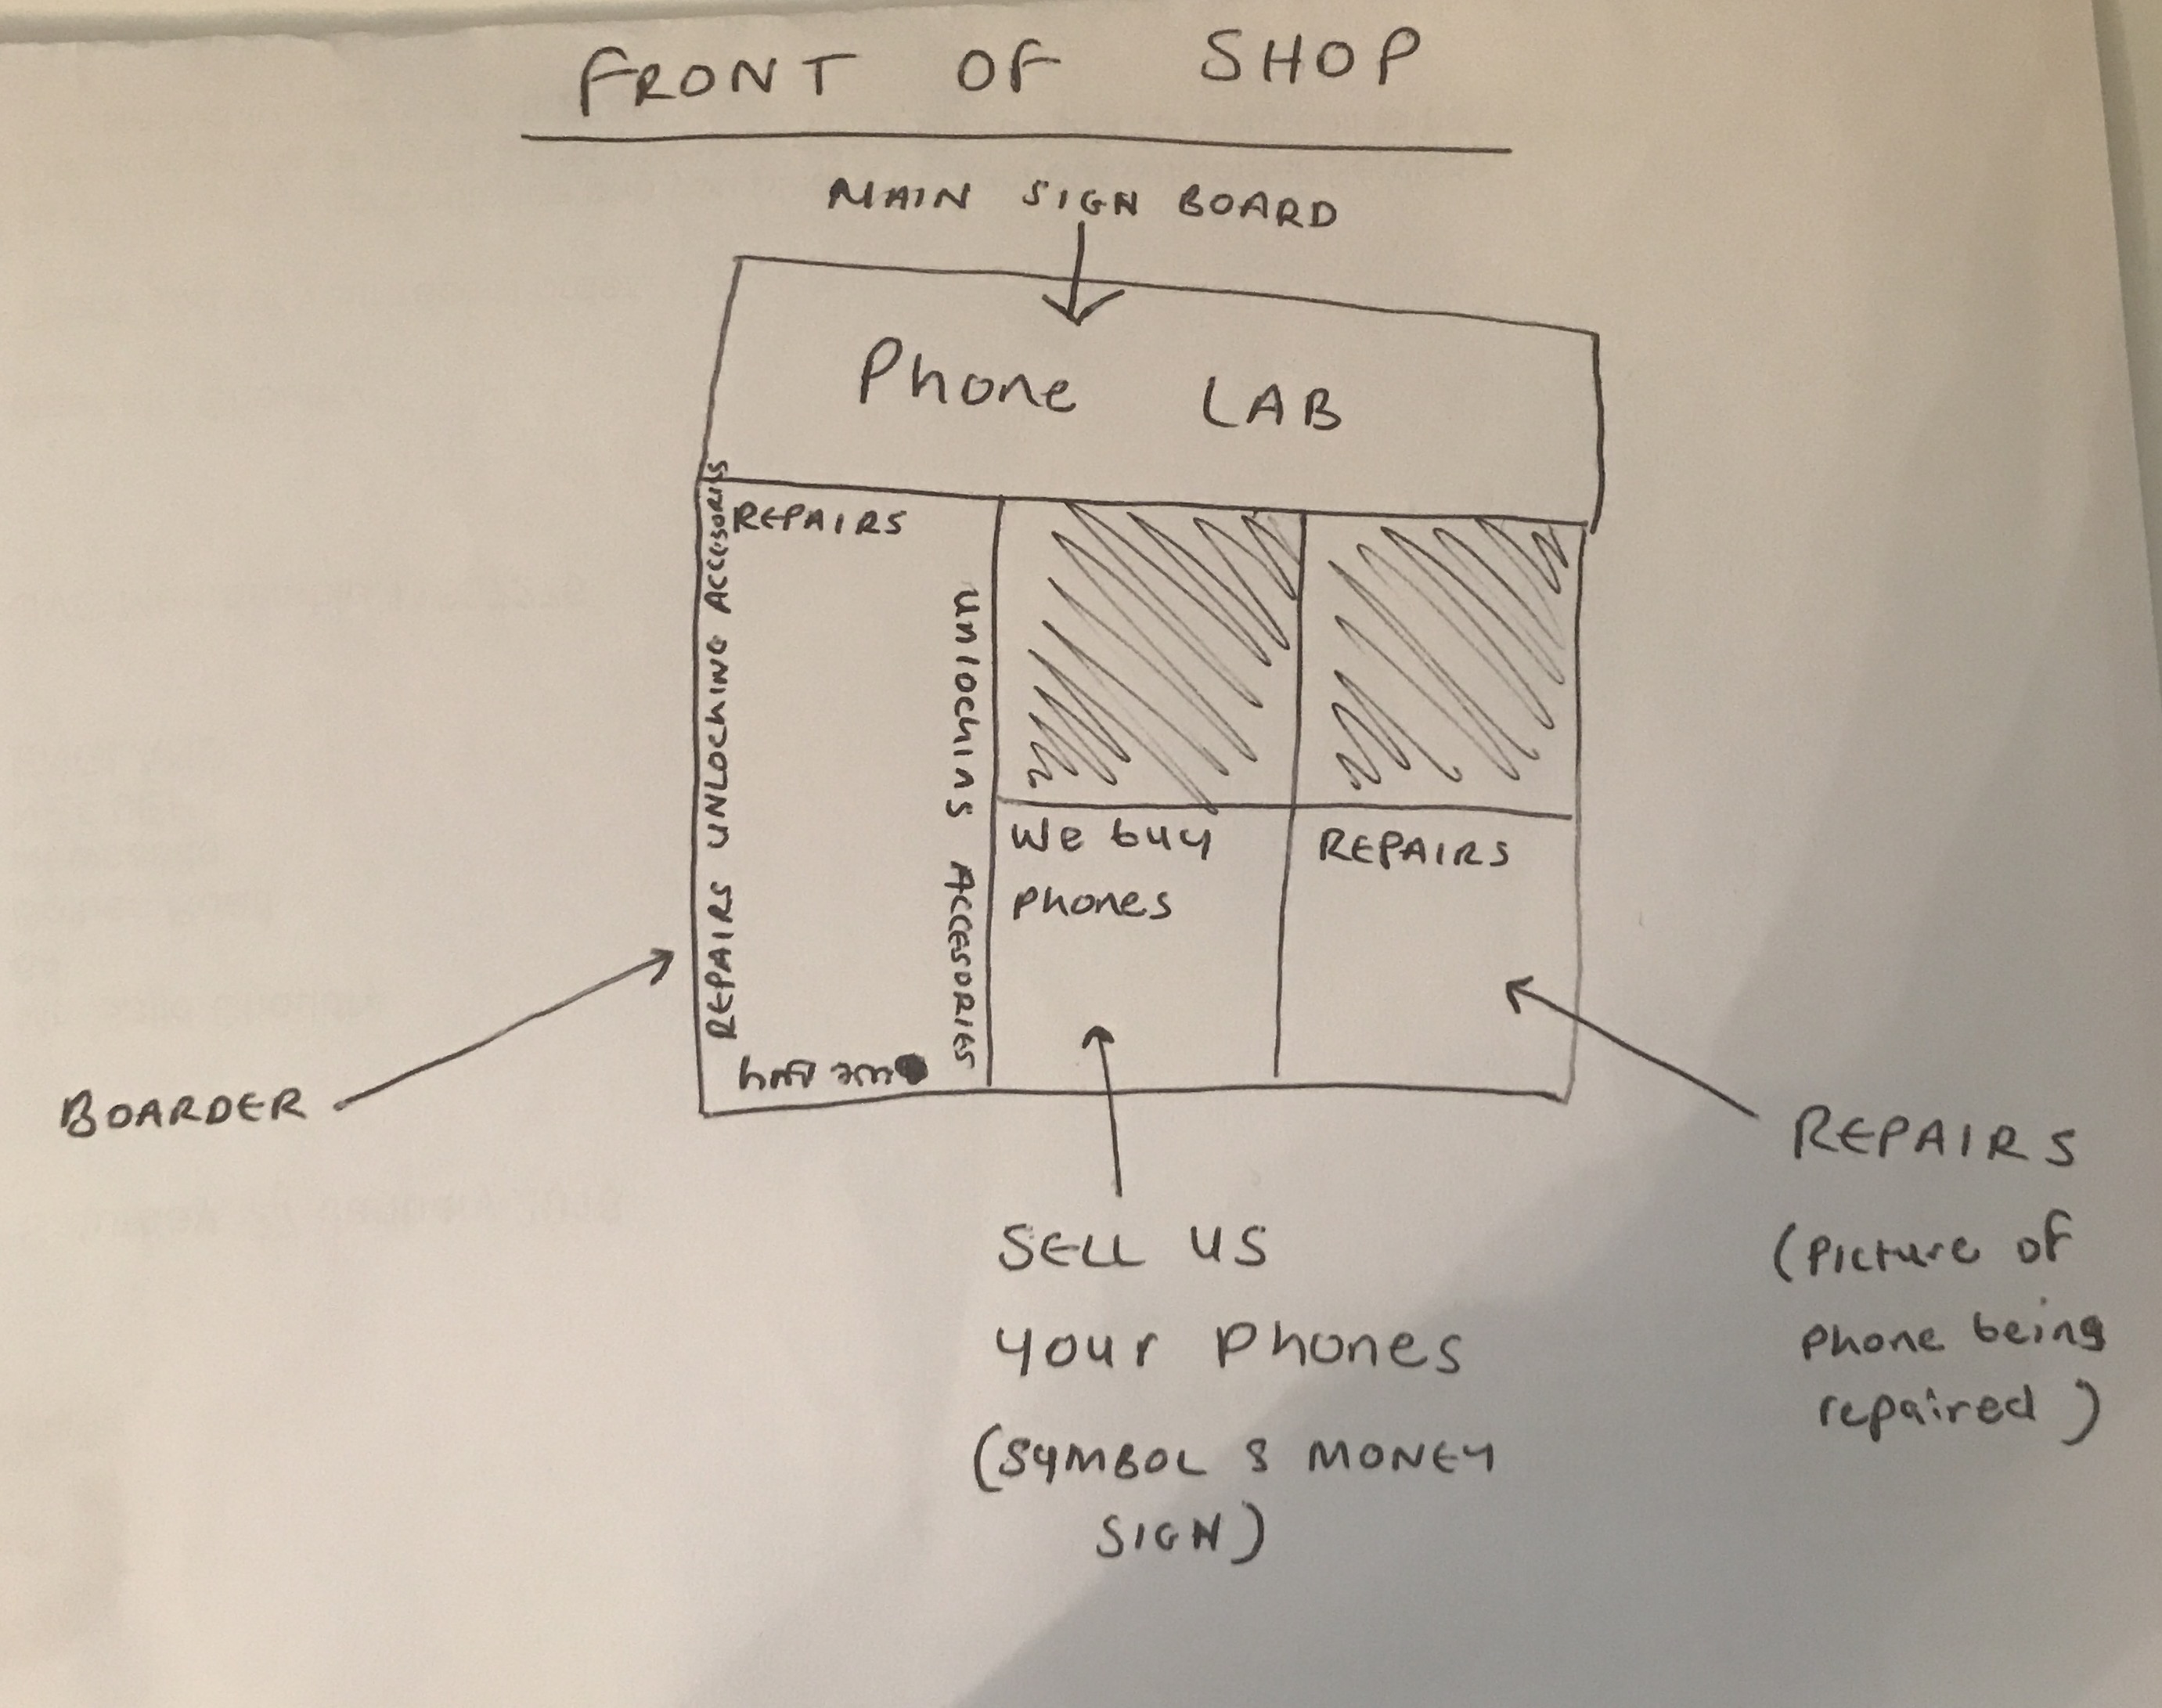 FRONT OF SHOP
MAIN SIGN BOARD
Phone LAB
REPAIRS UNLOCKING ACCESORIES
REPAIRS
UNLOCKING ACCESORIES
we buy
We buy
Phones
REPAIRS
BOARDER
SELL US
your Phones
(SYMBOL & MONEY
SIGN)
REPAIRS
(PICture of
phone being
repaired)